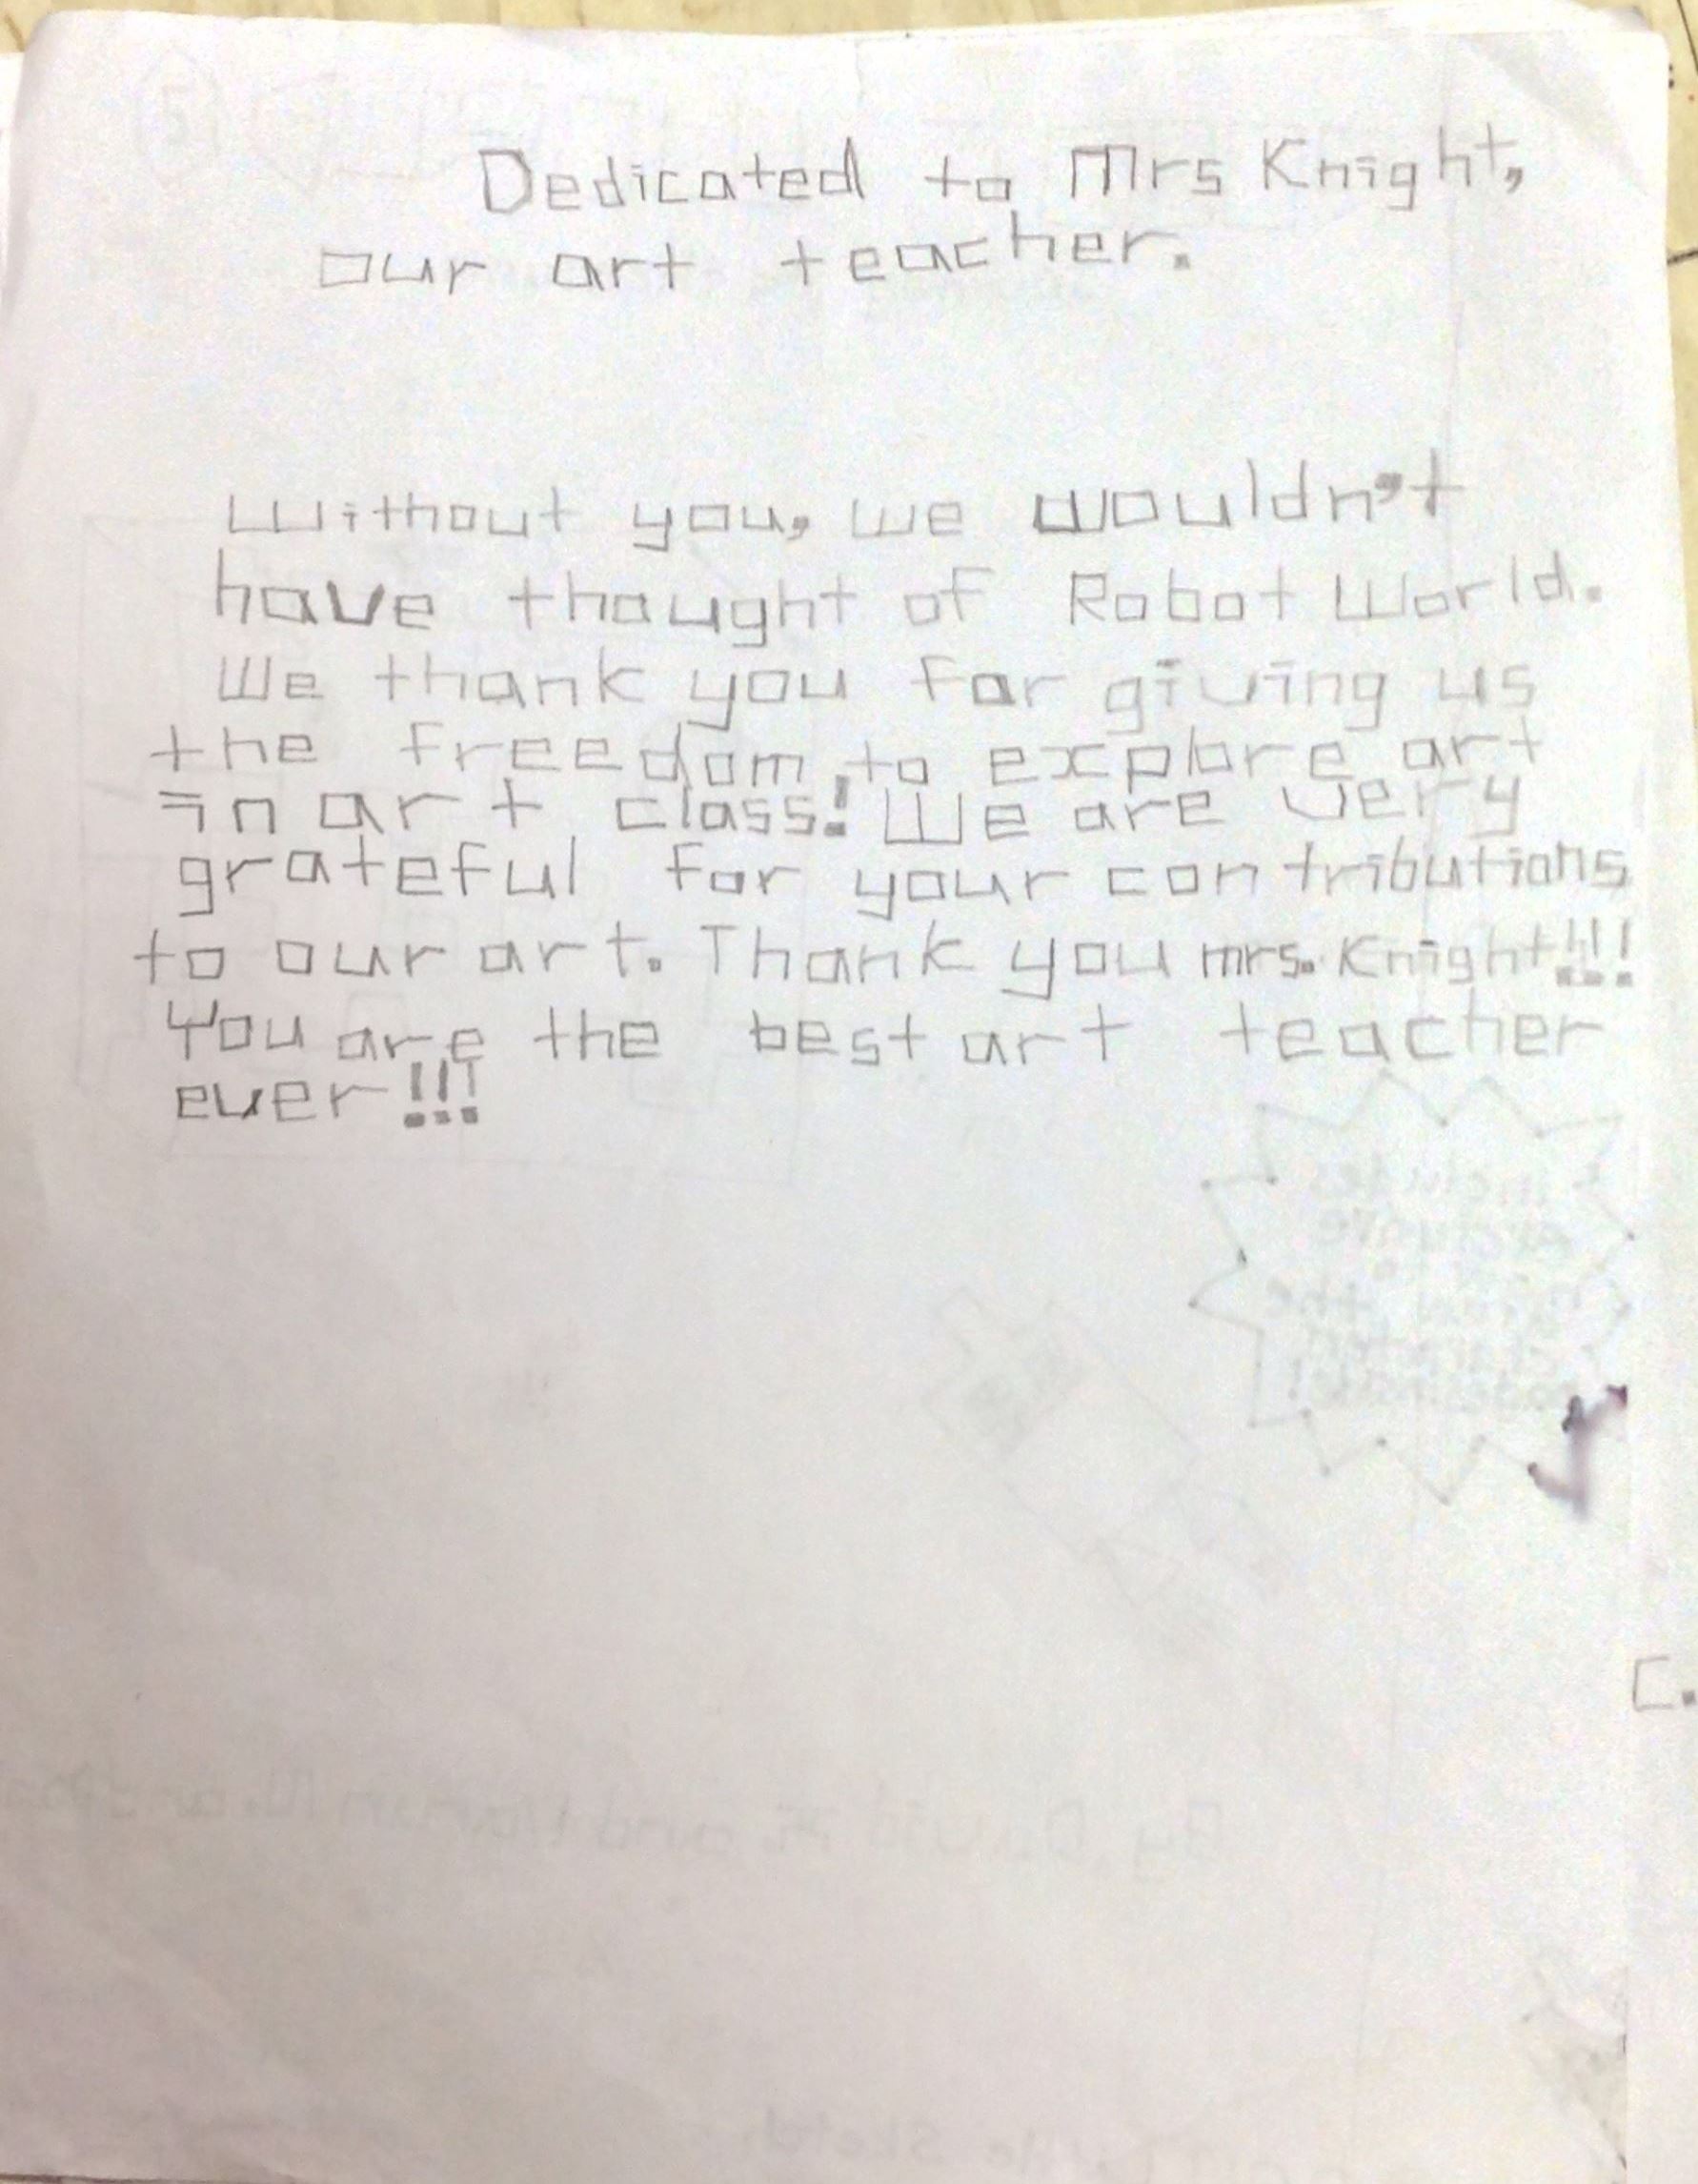 Dedicated to Mrs Knight,
our art teacher.
Without you, we wouldn't
have thought of Robot World.
We thank you for giving us
the freedom to explore art
in art class! We are very
grateful for your contributions
to our art. Thank you mrs. Knight!!!
You are the best art teacher
ever!!!
includes
the
C.
By David K. and